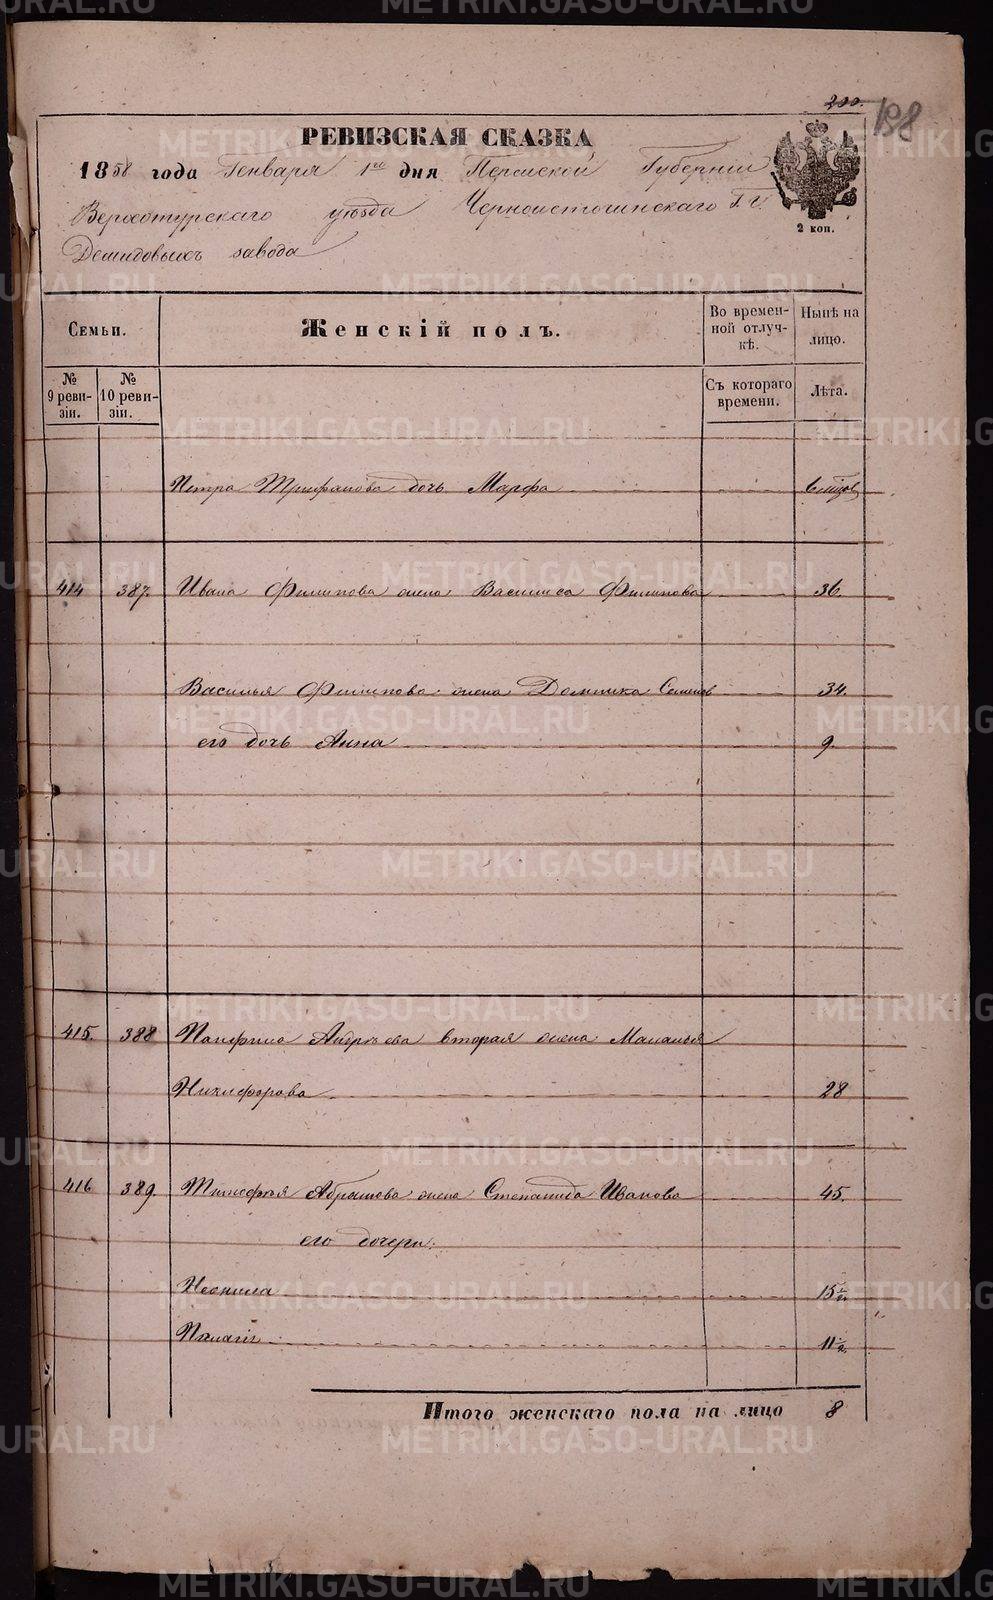 200.
198
РЕВИЗСКАЯ СКАЗКА
1858 года Генваря 1го дня Пермской Губернии
Верхотурскаго уѣзда Черноисточинскаго Г.г.
Демидовыхъ завода
2 коп.
Семьи.
Женскій полъ.
Во времен-
ной отлуч-
кѣ.
Нынѣ на
лицо.
№
9 реви-
зіи.
№
10 реви-
зіи.
Съ котораго
времени.
Лѣта.
Петра Трифанова дочь Марфа
414 387. Ивана Филипова жена Василиса Филипова 36.
Василья Филипова жена Домника Семенов 34.
его дочь Анна 9.
415. 388 Панфила Андрѣева вторая жена Маланья
Никифорова 28
416 389. Тимофея Абрамова жена Степанида Иванова 45.
его дочери:
Неонила 15 1/2.
Палагія 11 1/2.
Итого женскаго пола на лицо 8
METRIKI.GASO-URAL.RU